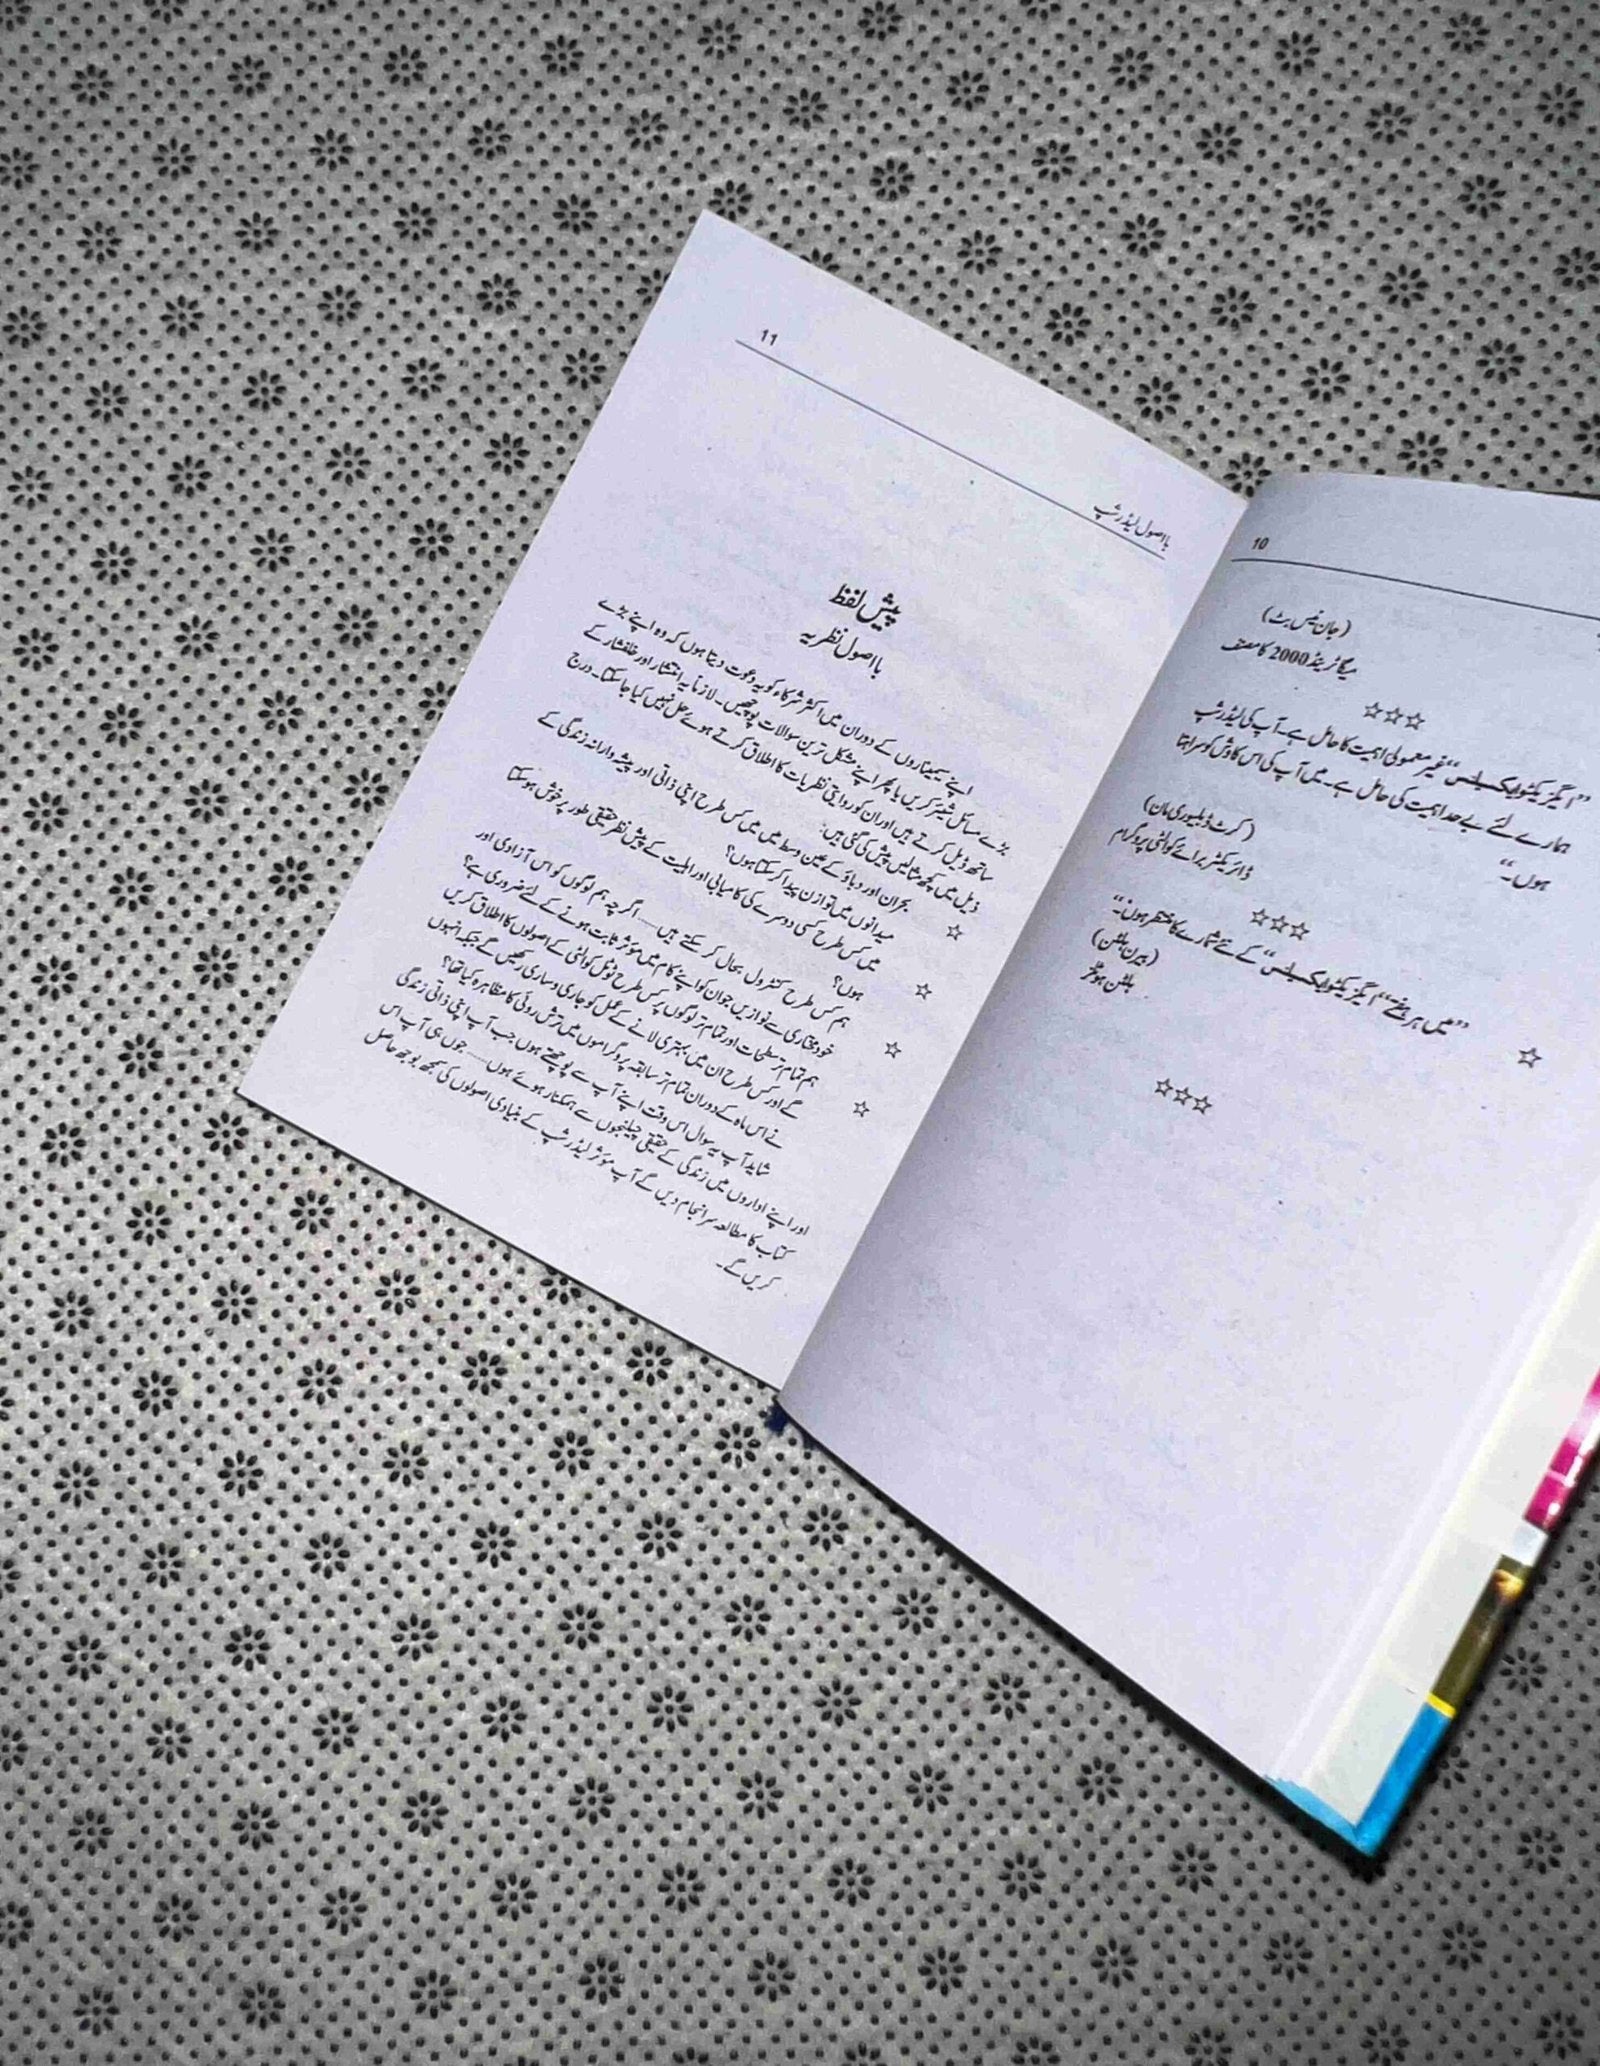 10
(جان نیس بٹ)
میگا ٹرینڈ 2000 کا مصنف
☆☆☆
”ایگزیکٹو ایکسیلنس“ غیر معمولی اہمیت کا حامل ہے۔ آپ کی لیڈر شپ
ہمارے لئے بے حد اہمیت کی حامل ہے۔ میں آپ کی اس کاوش کو سراہتا
ہوں۔“
(کرٹ ڈبلیوری مان)
ڈائریکٹر برائے کوالٹی پروگرام
☆☆☆
☆ ”میں ہر نئے ”ایگزیکٹو ایکسیلنس“ کے نئے شمارے کا منتظر ہوں۔“
(بیرن ہلٹن)
ہلٹن ہوٹلز
☆☆☆
بااصول لیڈر شپ 11
پیش لفظ
بااصول نظریہ
اپنے سیمیناروں کے دوران میں اکثر شرکاء کو یہ دعوت دیتا ہوں کہ وہ اپنے بڑے
بڑے مسائل شیئر کریں یا پھر اپنے مشکل ترین سوالات پوچھیں۔ لازماً یہ انتشار اور خلفشار کے
ساتھ ڈیل کرتے ہیں اور ان کو روایتی نظریات کا اطلاق کرتے ہوئے حل نہیں کیا جا سکتا۔ درج
ذیل میں کچھ مثالیں پیش کی گئی ہیں:
☆ بحران اور دباؤ کے عین وسط میں میں کس طرح اپنی ذاتی اور پیشہ وارانہ زندگی کے
میدانوں میں توازن پیدا کر سکتا ہوں؟
☆ میں کس طرح کسی دوسرے کی کامیابی اور اہلیت کے پیش نظر حقیقی طور پر خوش ہو سکتا
ہوں؟
☆ ہم کس طرح کنٹرول بحال کر سکتے ہیں..... اگرچہ ہم لوگوں کو اس آزادی اور
خود مختاری سے نوازیں جو ان کو اپنے کام میں مؤثر ثابت ہونے کے لئے ضروری ہے؟
☆ ہم تمام تر سطحات اور تمام تر لوگوں پر کس طرح ٹوٹل کوالٹی کے اصولوں کا اطلاق کریں
گے اور کس طرح ان میں بہتری لانے کے عمل کو جاری و ساری رکھیں گے جبکہ انہوں
نے اس ماہ کے دوران تمام تر سابقہ پروگراموں میں ترش روئی کا مظاہرہ کیا تھا؟
شاید آپ یہ سوال اس وقت اپنے آپ سے پوچھتے ہوں جب آپ اپنی ذاتی زندگی
اور اپنے اداروں میں زندگی کے حقیقی چیلنجوں سے ہمکنار ہوئے ہوں..... جوں ہی آپ اس
کتاب کا مطالعہ سرانجام دیں گے آپ مؤثر لیڈر شپ کے بنیادی اصولوں کی سمجھ بوجھ حاصل
کریں گے۔